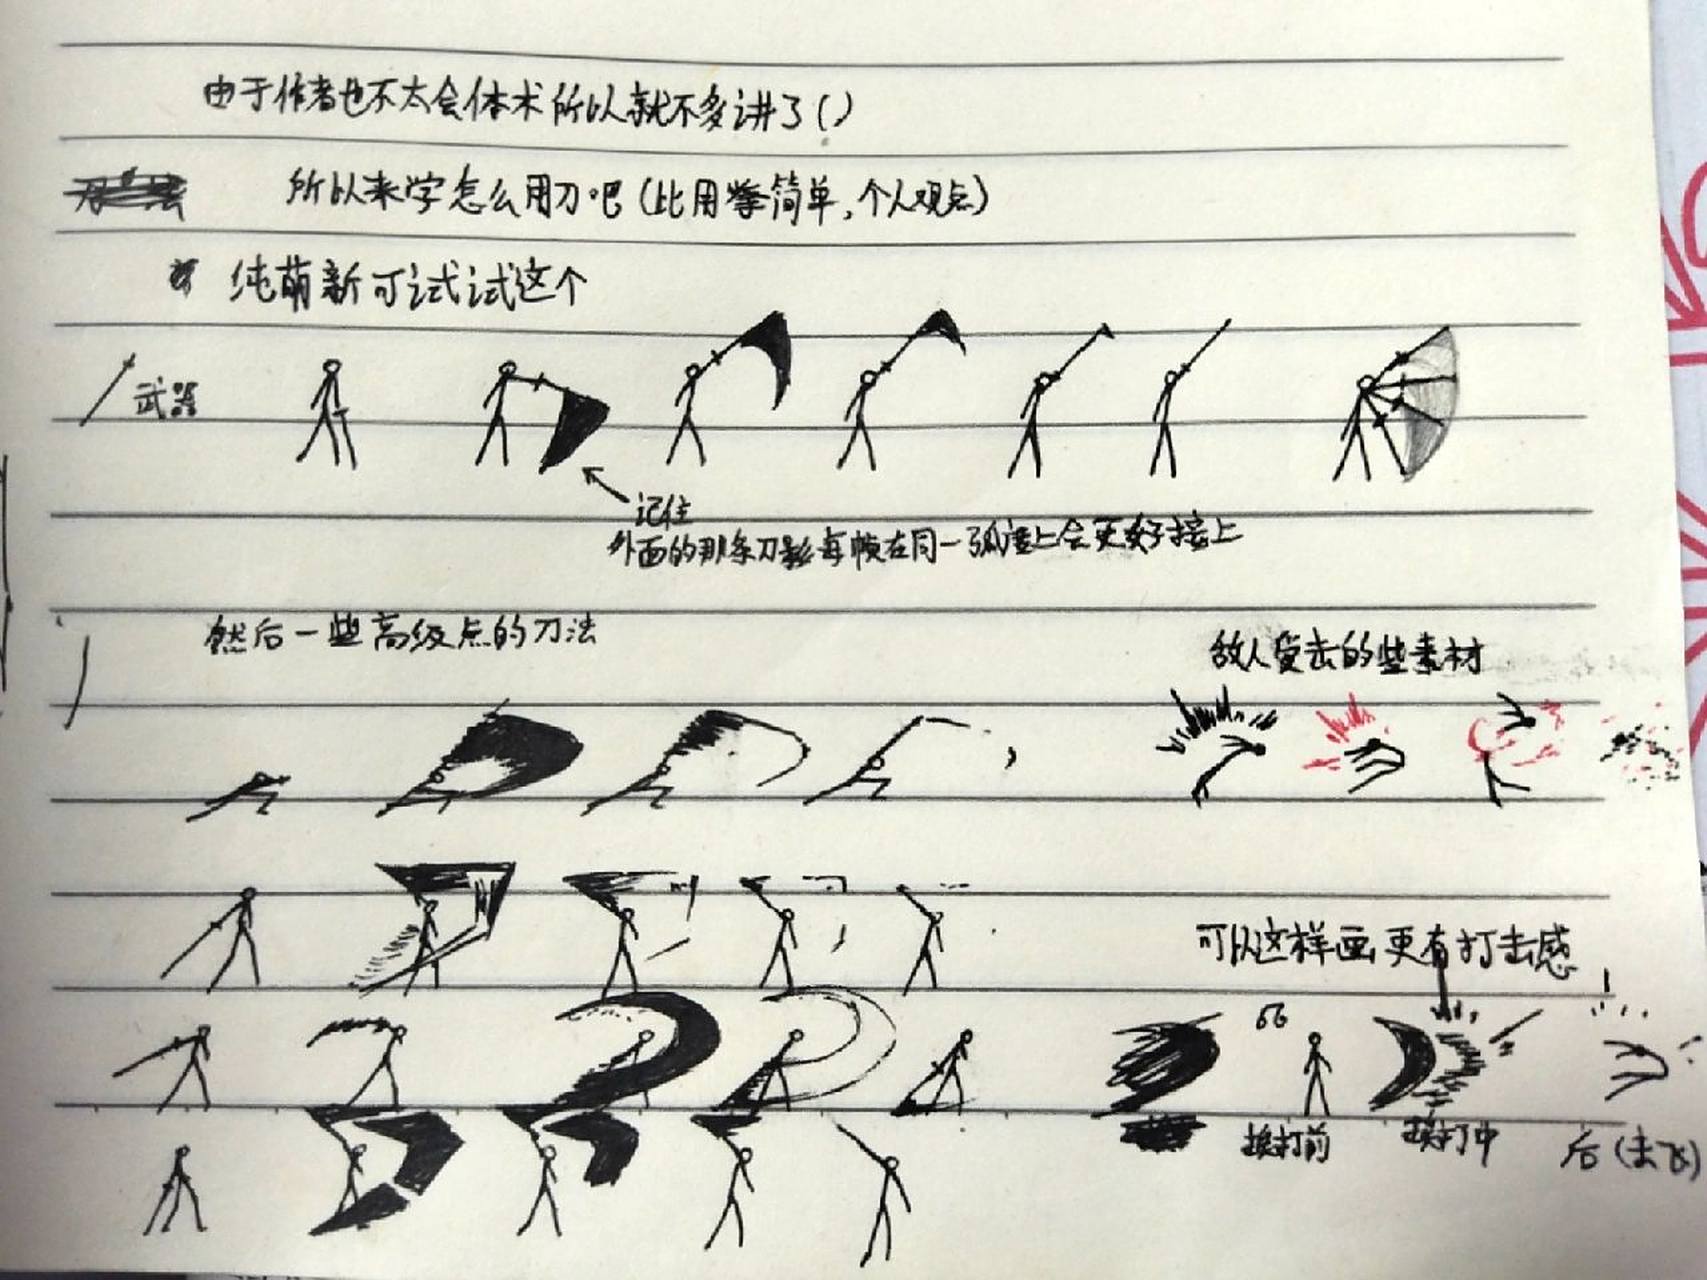 由于作者也不太会体术所以就不多讲了()
所以来学怎么用刀吧(比用拳简单,个人观点)
纯萌新可试试这个
武器
记住
外面的那条刀影每帧在同一弧度上会更好接上
然后一些高级点的刀法
敌人受击的些素材
可以这样画更有打击感
挨打前
挨打中
后(击飞)